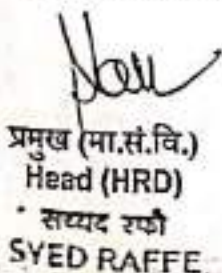 प्रमुख (मा.सं.वि.)
Head (HRD)
सय्यद रफी
SYED RAFFE